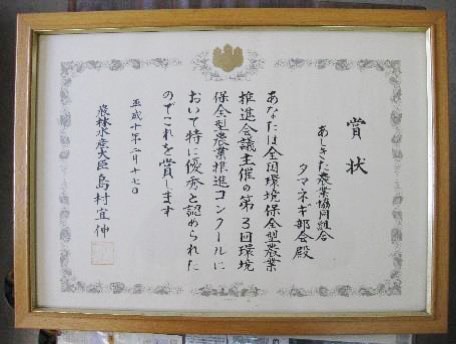 賞状
あしきた農業協同組合
タマネギ部会殿
あなたは全国環境保全型農業
推進会議主催の第3回環境
保全型農業推進コンクールに
おいて特に優秀と認められた
のでこれを賞します
平成十年二月十七日
農林水産大臣 島村宜伸